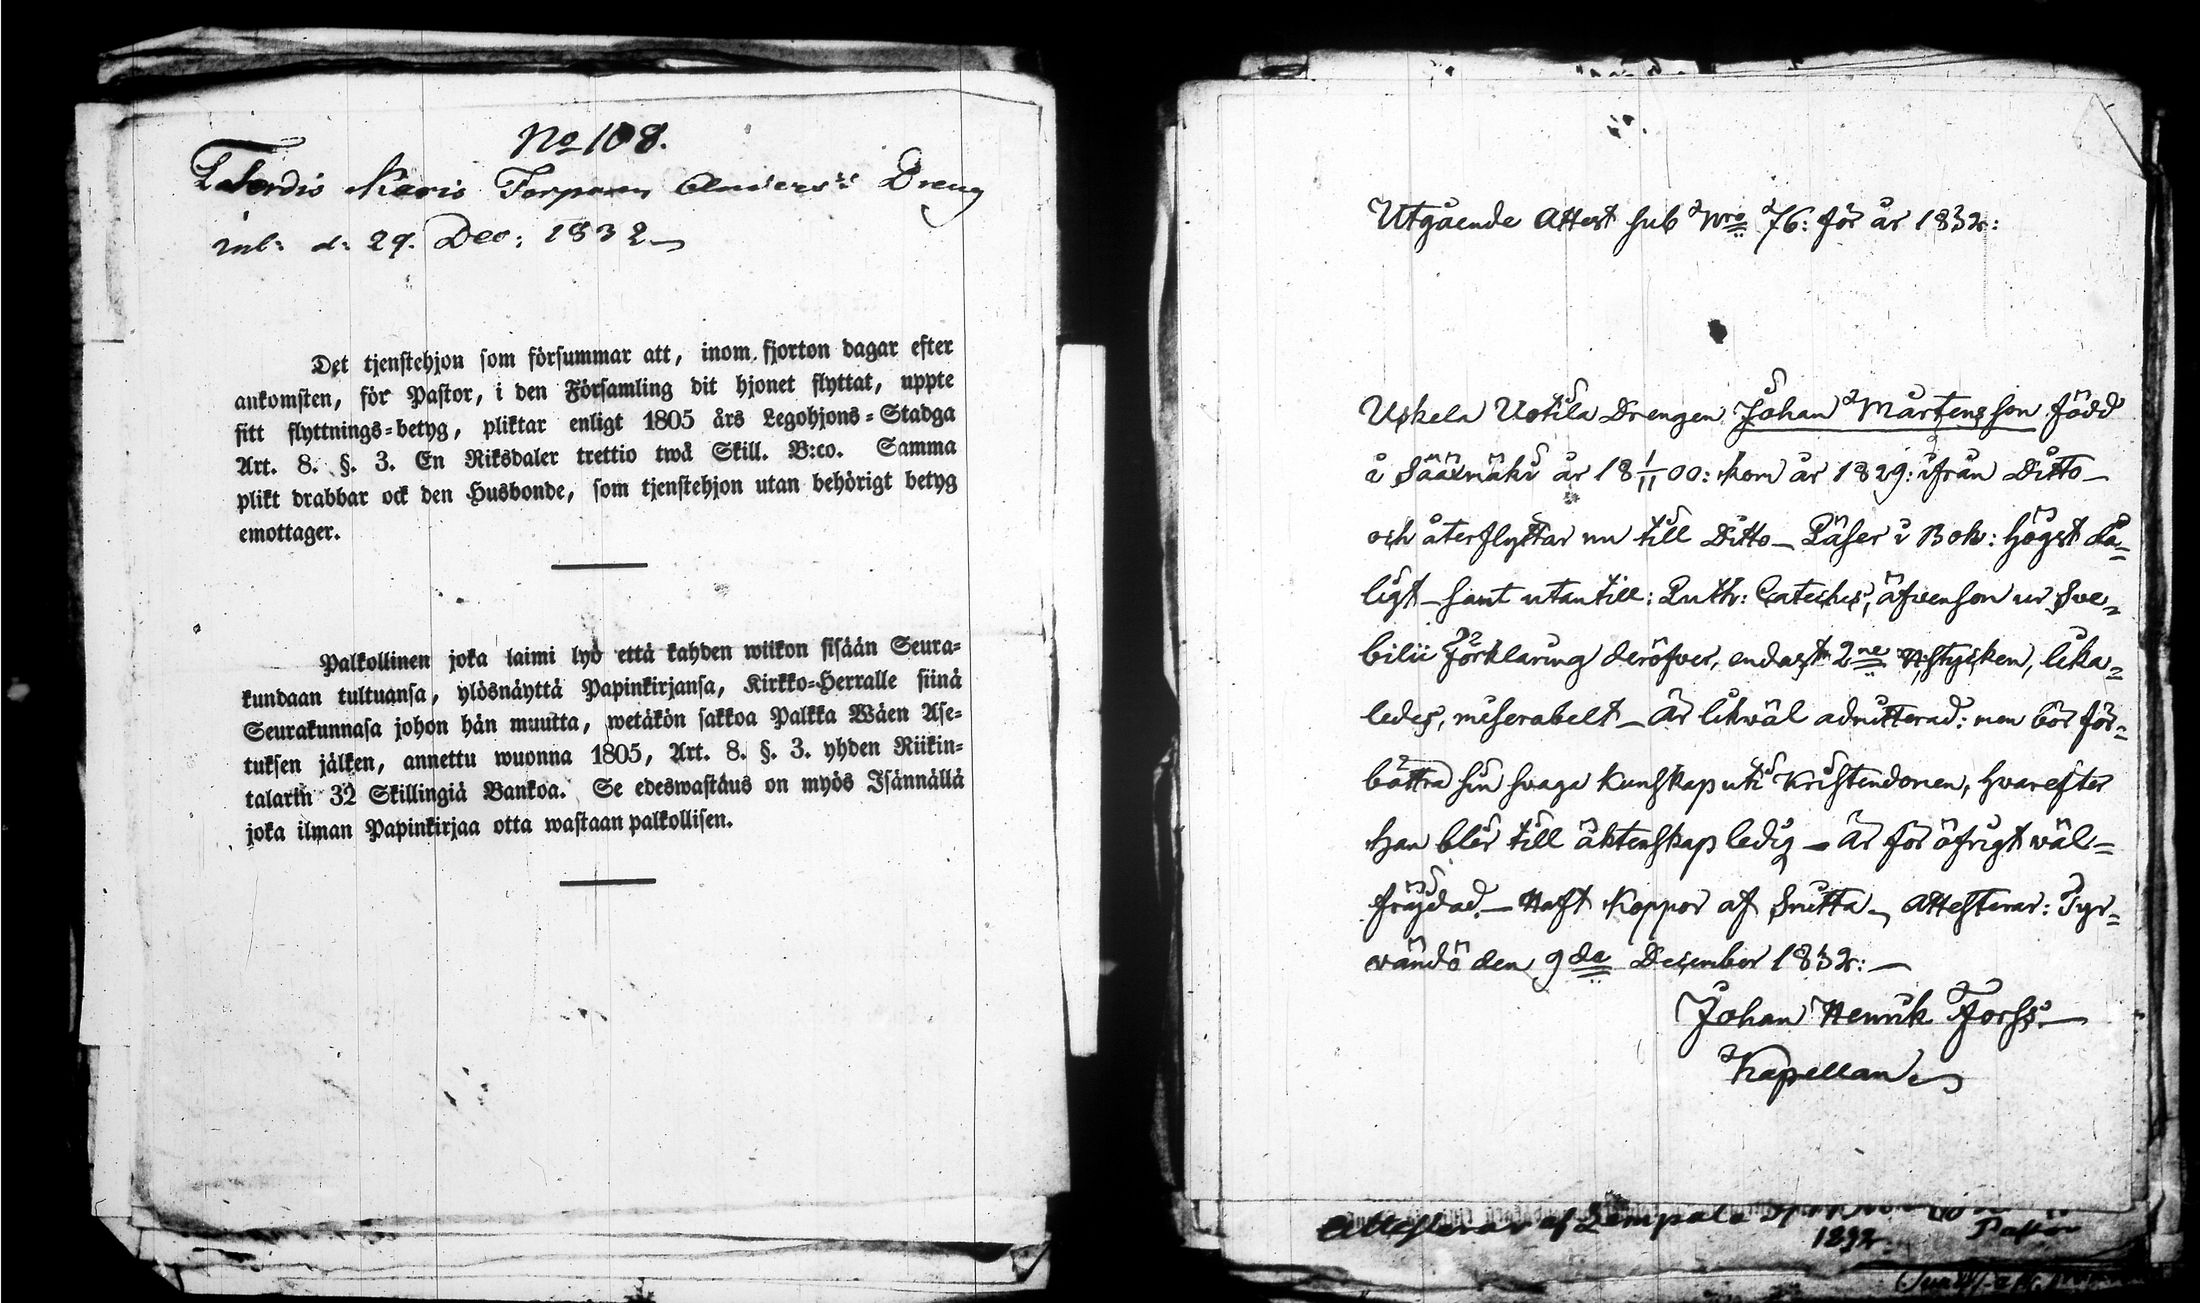 No 108.
Kavis Torparn Anders's Dreng
inl: d: 29. Dec: 1832
Det tjenstehjon som försummar att, inom fjorton dagar efter
ankomsten, för Pastor, i den Församling dit hjonet flyttat, uppte
sitt flyttnings-betyg, pliktar enligt 1805 års Legohjons-Stadga
Art. 8. §. 3. En Riksdaler trettio twå Skill. B:co. Samma
plikt drabbar ock den Husbonde, som tjenstehjon utan behörigt betyg
emottager.
Palkollinen joka laimi lyö että kahden wiikon sisään Seura-
kundaan tultuansa, ylösnäyttä Papinkirjansa, Kirkko-Herralle siinä
Seurakunnasa johon hän muutta, wetäkön sakkoa Palkka Wäen Ase-
tuksen jälken, annettu wuonna 1805, Art. 8. §. 3. yhden Riikin-
talarin 32 Skillingiä Bankoa. Se edeswastaus on myös Isännällä
joka ilman Papinkirjaa otta wastaan palkollisen.
Utgående Attest sub Nro 76: för år 1832:
Uskela Uotila Drengen Johan Mårtensson född
i Sääxmäki år 18 1/11 00: kom år 1829: ifrån Ditto
och återflyttar nu till Ditto Läser i Bok: högst då=
ligt samt utantill: Luth: Cateches, äfvensom ur Sve=
bilii Förklaring deröfver, endast 2ne stycken, lika=
ledes, miserabelt Är likwäl admitterad: men bör för=
bättra sin svaga Kunskap uti Kristendomen, hvarefter
han blir till äktenskap ledig Är för öfrigt wäl=
fräjdad. Haft Koppor af Smitta Attesterar: Tyr=
wändö den 9da December 1832:
Johan Henrik Forss
Kapellan
Attesterar af Lempälä
1832.
Pastor